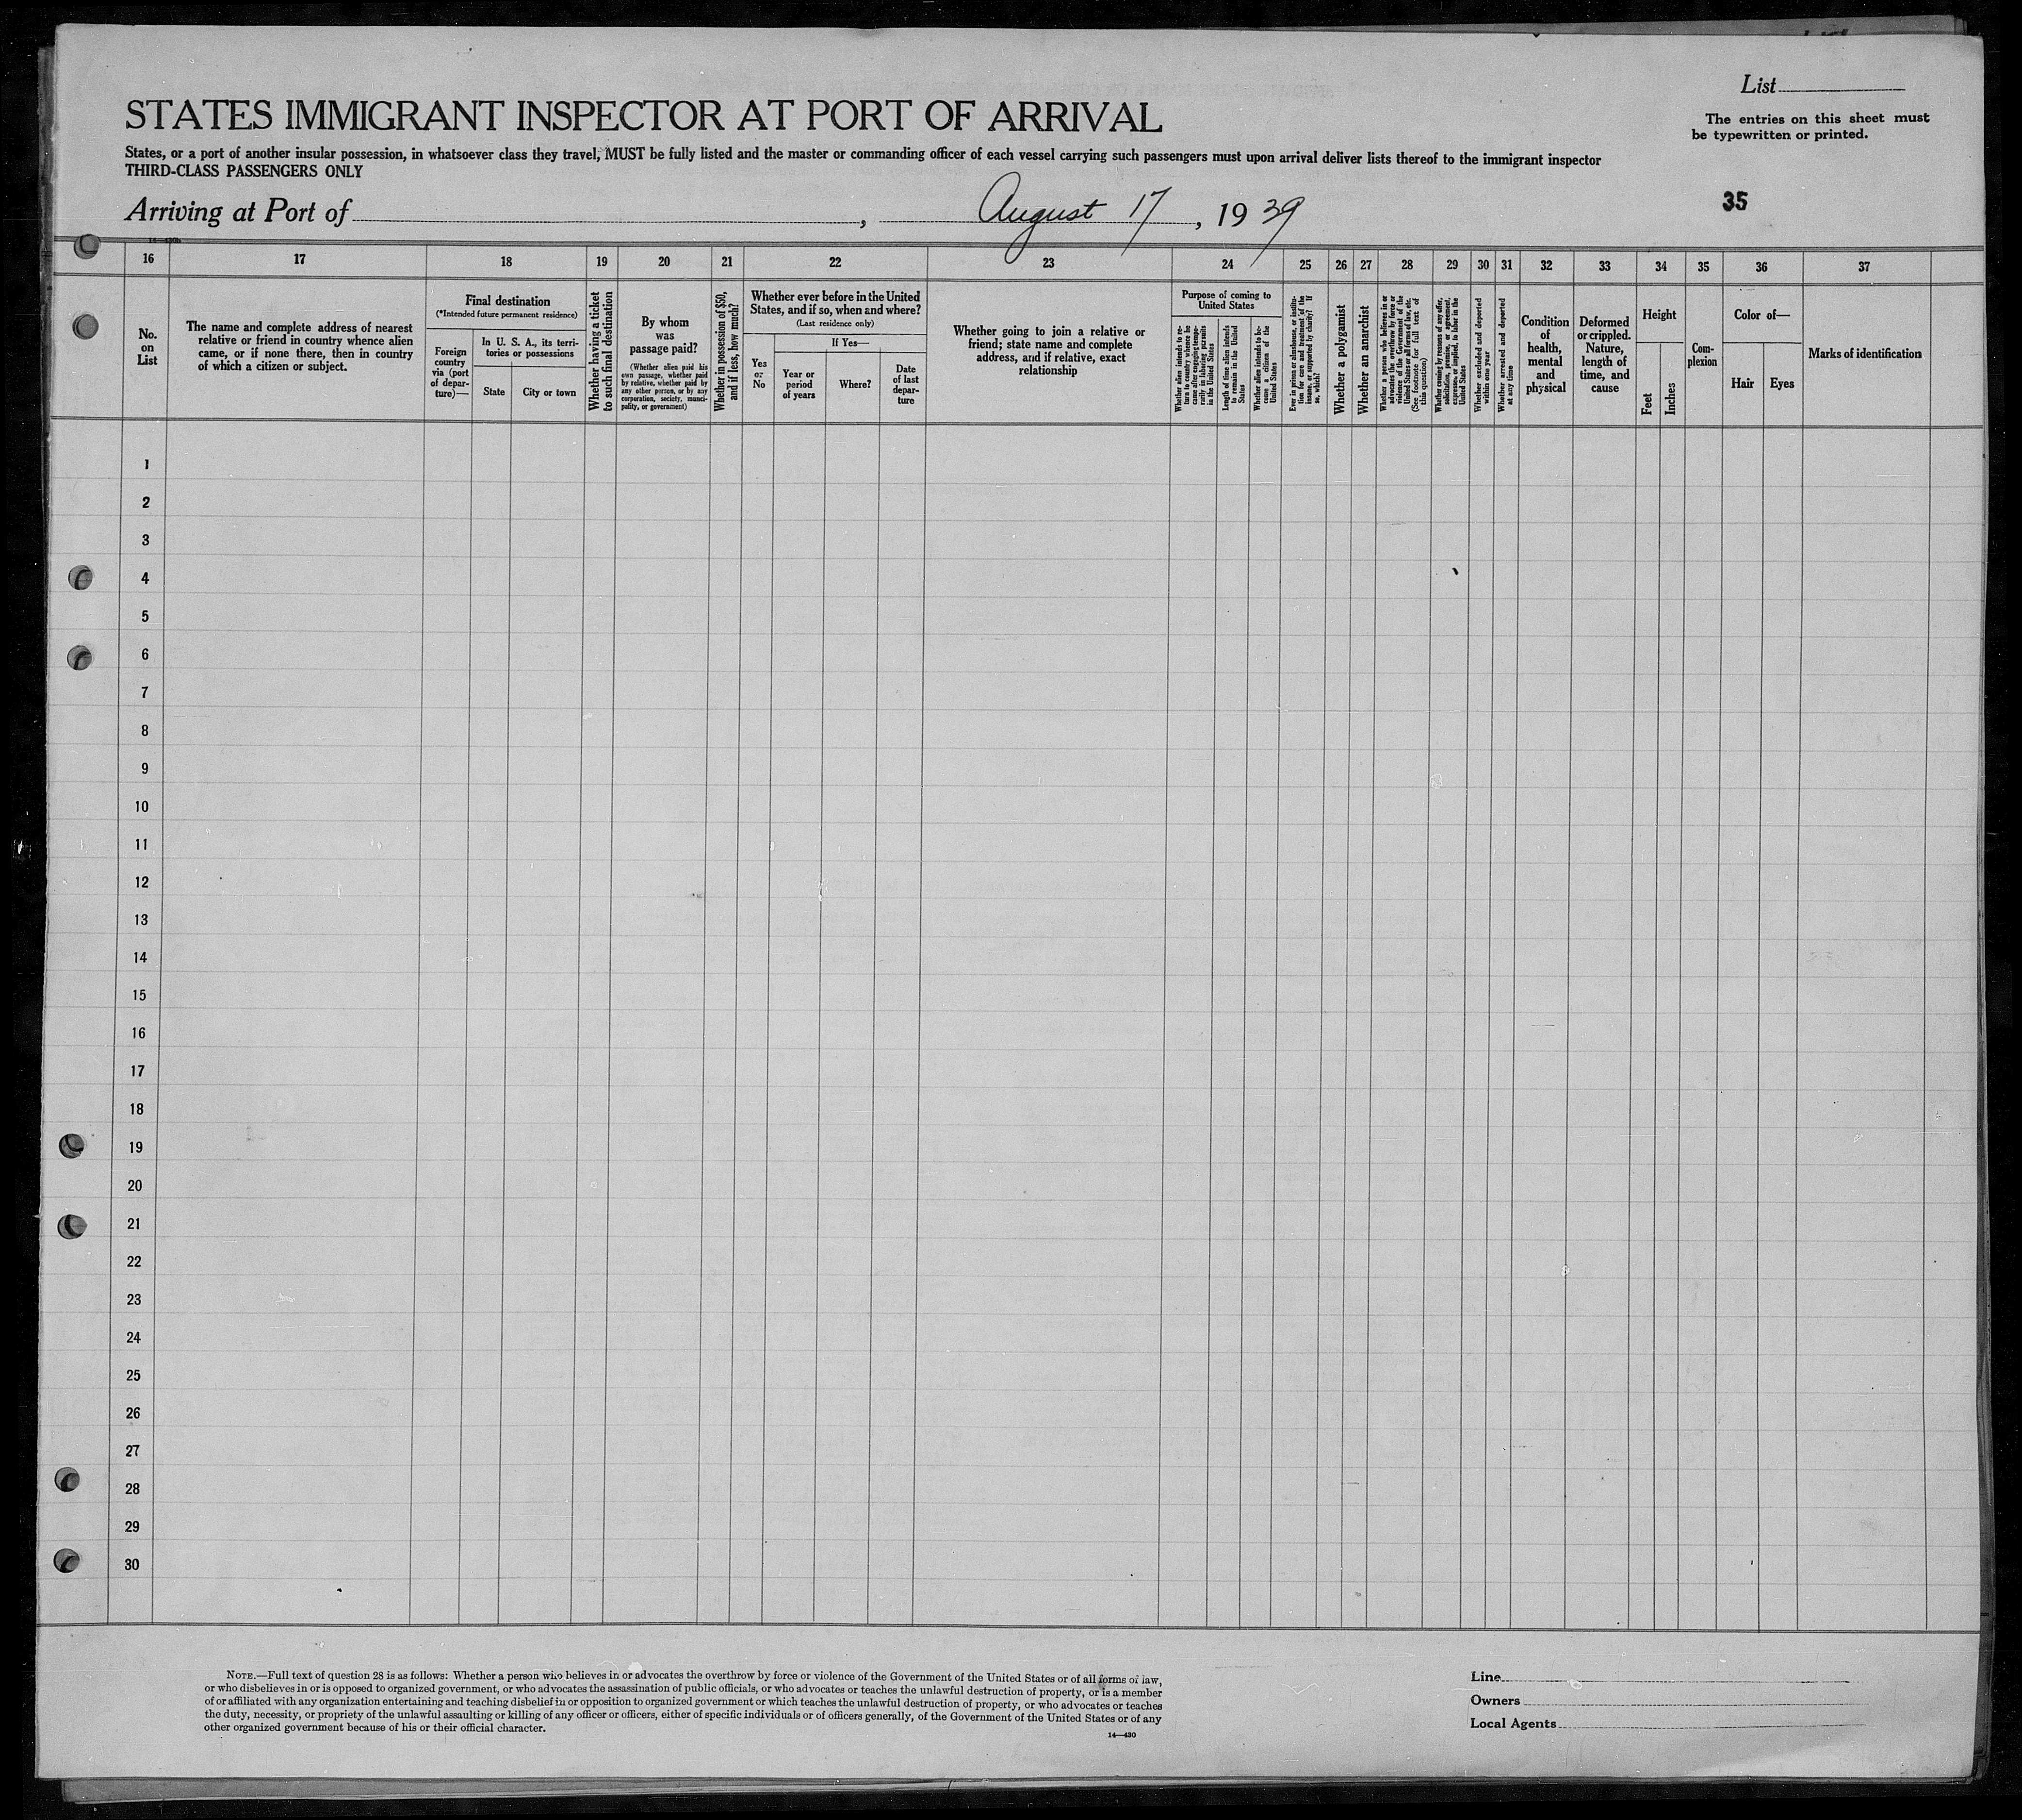 List
STATES IMMIGRANT INSPECTOR AT PORT OF ARRIVAL
The entries on this sheet must
be typewritten or printed.
States, or a port of another insular possession, in whatsoever class they travel, MUST be fully listed and the master or commanding officer of each vessel carrying such passengers must upon arrival deliver lists thereof to the immigrant inspector
THIRD-CLASS PASSENGERS ONLY
Arriving at Port of , August 17, 1939
35
16 17 18 19 20 21 22 23 24 25 26 27 28 29 30 31 32 33 34 35 36 37
No.
on
List
The name and complete address of nearest
relative or friend in country whence alien
came, or if none there, then in country
of which a citizen or subject.
Final destination
(*Intended future permanent residence)
Foreign
country
via (port
of depar-
ture)—
In U. S. A., its terri-
tories or possessions
State
City or town
Whether having a ticket
to such final destination
By whom
was
passage paid?
(Whether alien paid his
own passage, whether paid
by relative, whether paid by
any other person, or by any
corporation, society, munici-
pality, or government)
Whether in possession of $50,
and if less, how much?
Whether ever before in the United
States, and if so, when and where?
(Last residence only)
Yes
or
No
If Yes—
Year or
period
of years
Where?
Date
of last
depar-
ture
Whether going to join a relative or
friend; state name and complete
address, and if relative, exact
relationship
Purpose of coming to
United States
Whether alien intends to re-
turn to country whence he
came after engaging tempo-
rarily in laboring pursuits
in the United States
Length of time alien intends
to remain in the United
States
Whether alien intends to be-
come a citizen of the
United States
Ever in prison or almshouse, or institu-
tion for care and treatment of the
insane, or supported by charity? If
so, which?
Whether a polygamist
Whether an anarchist
Whether a person who believes in or
advocates the overthrow by force or
violence of the Government of the
United States or all forms of law, etc.
(See footnote for full text of
this question)
Whether coming by reasons of any offer,
solicitation, promise, or agreement,
expressed or implied, to labor in the
United States
Whether excluded and deported
within one year
Whether arrested and deported
at any time
Condition
of
health,
mental
and
physical
Deformed
or crippled.
Nature,
length of
time, and
cause
Height
Feet
Inches
Com-
plexion
Color of—
Hair
Eyes
Marks of identification
1
2
3
4
5
6
7
8
9
10
11
12
13
14
15
16
17
18
19
20
21
22
23
24
25
26
27
28
29
30
NOTE.—Full text of question 28 is as follows: Whether a person who believes in or advocates the overthrow by force or violence of the Government of the United States or of all forms of law,
or who disbelieves in or is opposed to organized government, or who advocates the assassination of public officials, or who advocates or teaches the unlawful destruction of property, or is a member
of or affiliated with any organization entertaining and teaching disbelief in or opposition to organized government or which teaches the unlawful destruction of property, or who advocates or teaches
the duty, necessity, or propriety of the unlawful assaulting or killing of any officer or officers, either of specific individuals or of officers generally, of the Government of the United States or of any
other organized government because of his or their official character.
14—430
Line
Owners
Local Agents